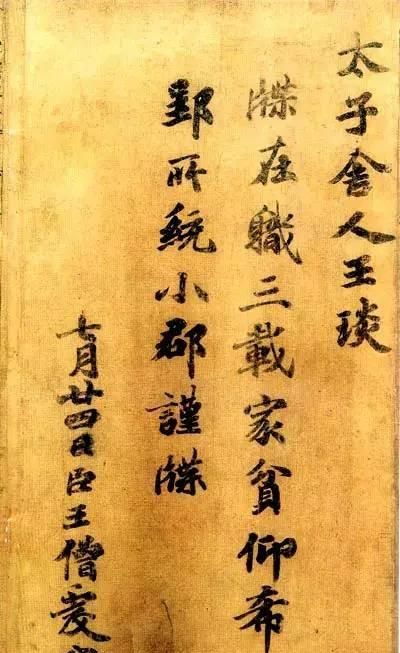 太子舍人王琰
牒在職三載家貧仰希
郢所統小郡謹牒
七月廿四日臣王僧虔